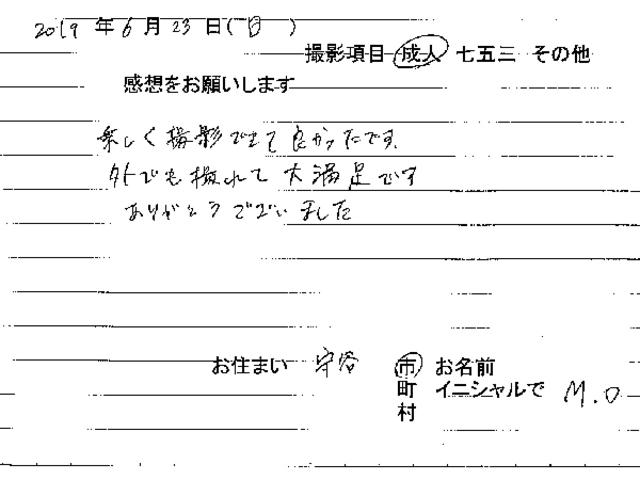 2019年6月23日(日)
撮影項目 成人 七五三 その他
感想をお願いします
楽しく撮影できて良かったです。
外でも撮れて大満足です
ありがとうございました
お住まい 守谷 市 お名前
町 イニシャルで M.O
村